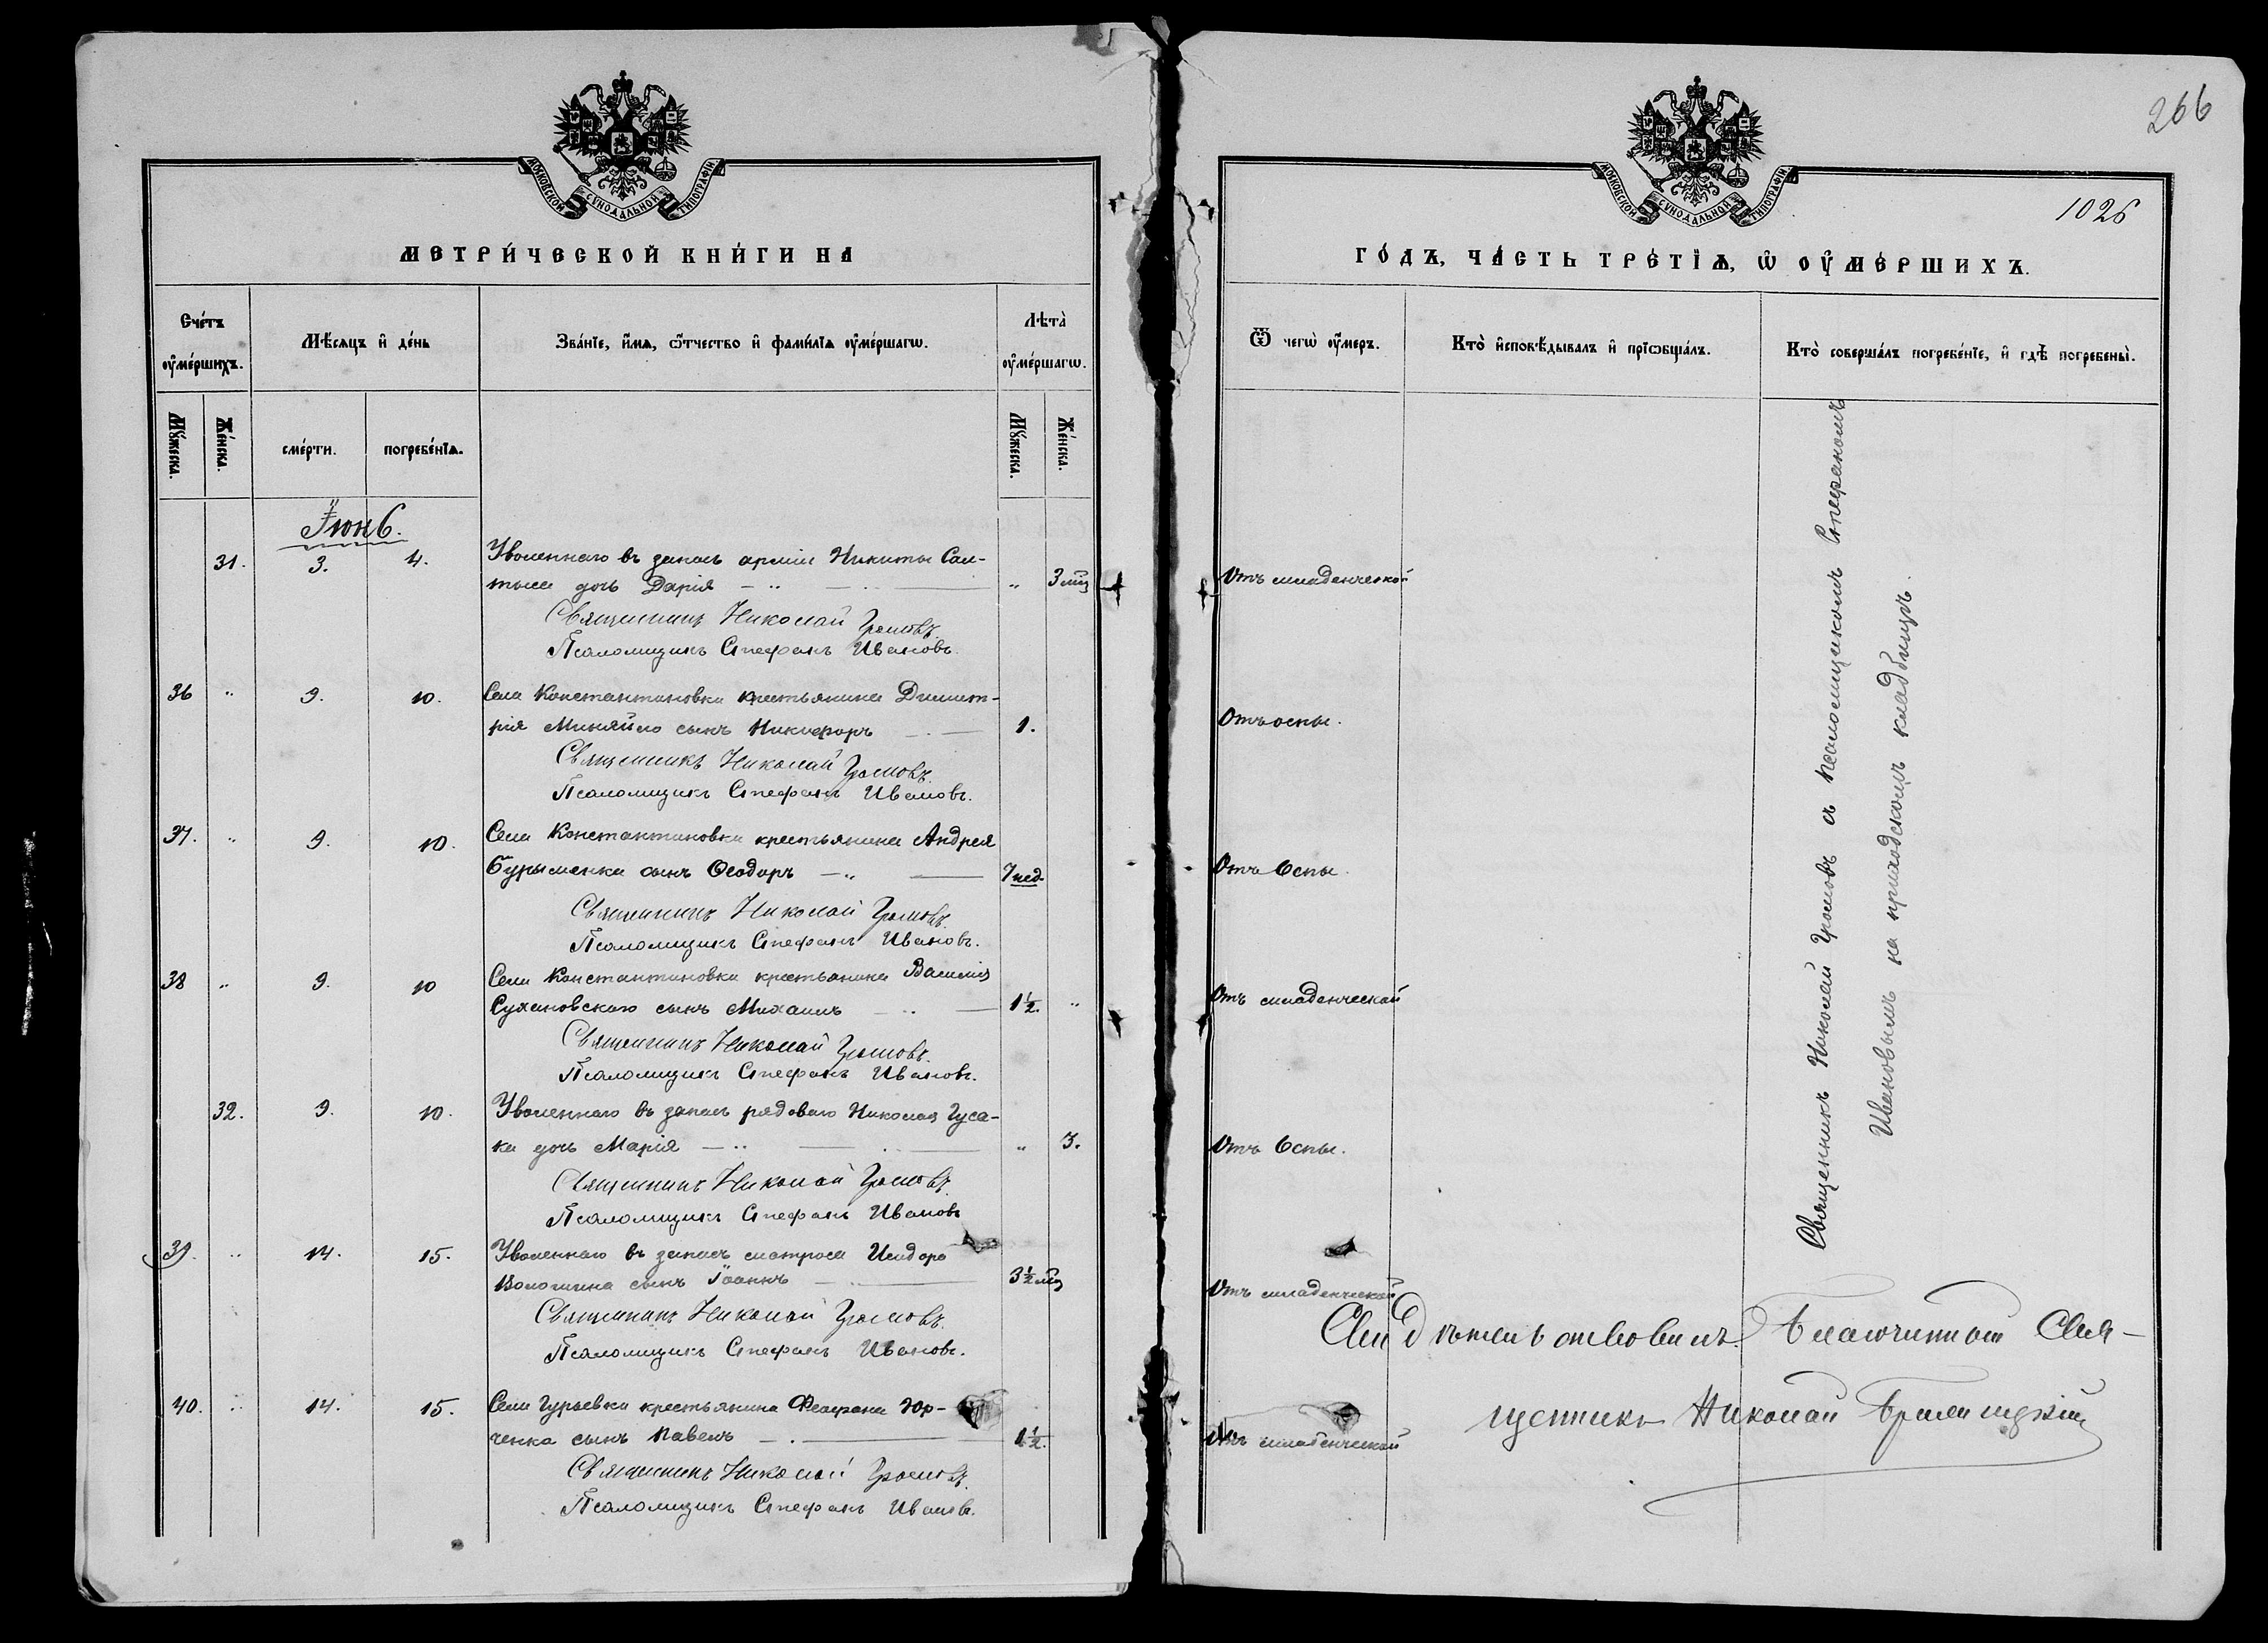 266
1026
МОСКОВСКОЙ СУНОДАЛЬНОЙ ТИПОГРАФІИ
МЕТРИ́ЧЕСКОЙ КНИ́ГИ НА
Сче́тъ ᲂу҆ме́ршихъ.
Мѣ́сяцъ и҆ де́нь
Зва́нїе, и҆́мя, ѻ҆́тчество и҆ фами́лїя ᲂу҆ме́ршагѡ.
Лѣта̀ ᲂу҆ме́ршагѡ.
Мꙋ́жеска.
Же́нска.
сме́рти.
погребе́нїѧ.
Мꙋ́жеска.
Же́нска.
Іюнь.
31. 3. 4. Уволеннаго въ запасъ арміи Никиты Сал-
тыса дочь Дарія " 3 мѣс
Священникъ Николай Громовъ.
Псаломщикъ Стефанъ Ивановъ.
36 " 9. 10. Села Константиновки крестьянина Димит-
рія Миняйло сынъ Никифоръ 1.
Священникъ Николай Громовъ.
Псаломщикъ Стефанъ Ивановъ.
37. " 9. 10. Села Константиновки крестьянина Андрея
Бурыменка сынъ Ѳеодоръ 7 нед.
Священникъ Николай Громовъ.
Псаломщикъ Стефанъ Ивановъ.
38 " 9. 10 Села Константиновки крестьянина Василія
Сухановскаго сынъ Михаилъ 1½. "
Священникъ Николай Громовъ.
Псаломщикъ Стефанъ Ивановъ.
32. 9. 10. Уволеннаго въ запасъ рядоваго Николая Гуса-
ка дочь Марія " 3.
Священникъ Николай Громовъ.
Псаломщикъ Стефанъ Ивановъ
39. " 14. 15. Уволеннаго въ запасъ матроса Исидора
сынъ Іоаннъ 3½ мѣс
Священникъ Николай Громовъ.
Псаломщикъ Стефанъ Ивановъ.
40. " 14. 15. Села Гурьевки крестьянина Феофана Юр-
ченка сынъ Павелъ 1½.
Священникъ Николай Громовъ.
Псаломщикъ Стефанъ Ивановъ.
МОСКОВСКОЙ СУНОДАЛЬНОЙ ТИПОГРАФІИ
ГО́ДЪ, ЧА́СТЬ ТРЕ́ТЇѦ, Ѡ҆ ОУ҆МЕ́РШИХЪ.
Ѿ чегѡ̀ ᲂу҆́меръ.
Кто̀ и҆сповѣ́дывалъ и҆ прїѡбща́лъ.
Кто̀ соверша́лъ погребе́нїе, и҆ гдѣ̀ погребены̀.
Отъ младенческой
Отъ оспы.
Отъ Оспы.
Отъ младенческой
Отъ Оспы.
Отъ младенческой
Отъ младенческой
Священникъ Николай Громовъ съ псаломщикомъ Стефаномъ
Ивановымъ на приходскомъ кладбищѣ.
Свидѣтельствовалъ Благочинный Свя-
щенникъ Николай